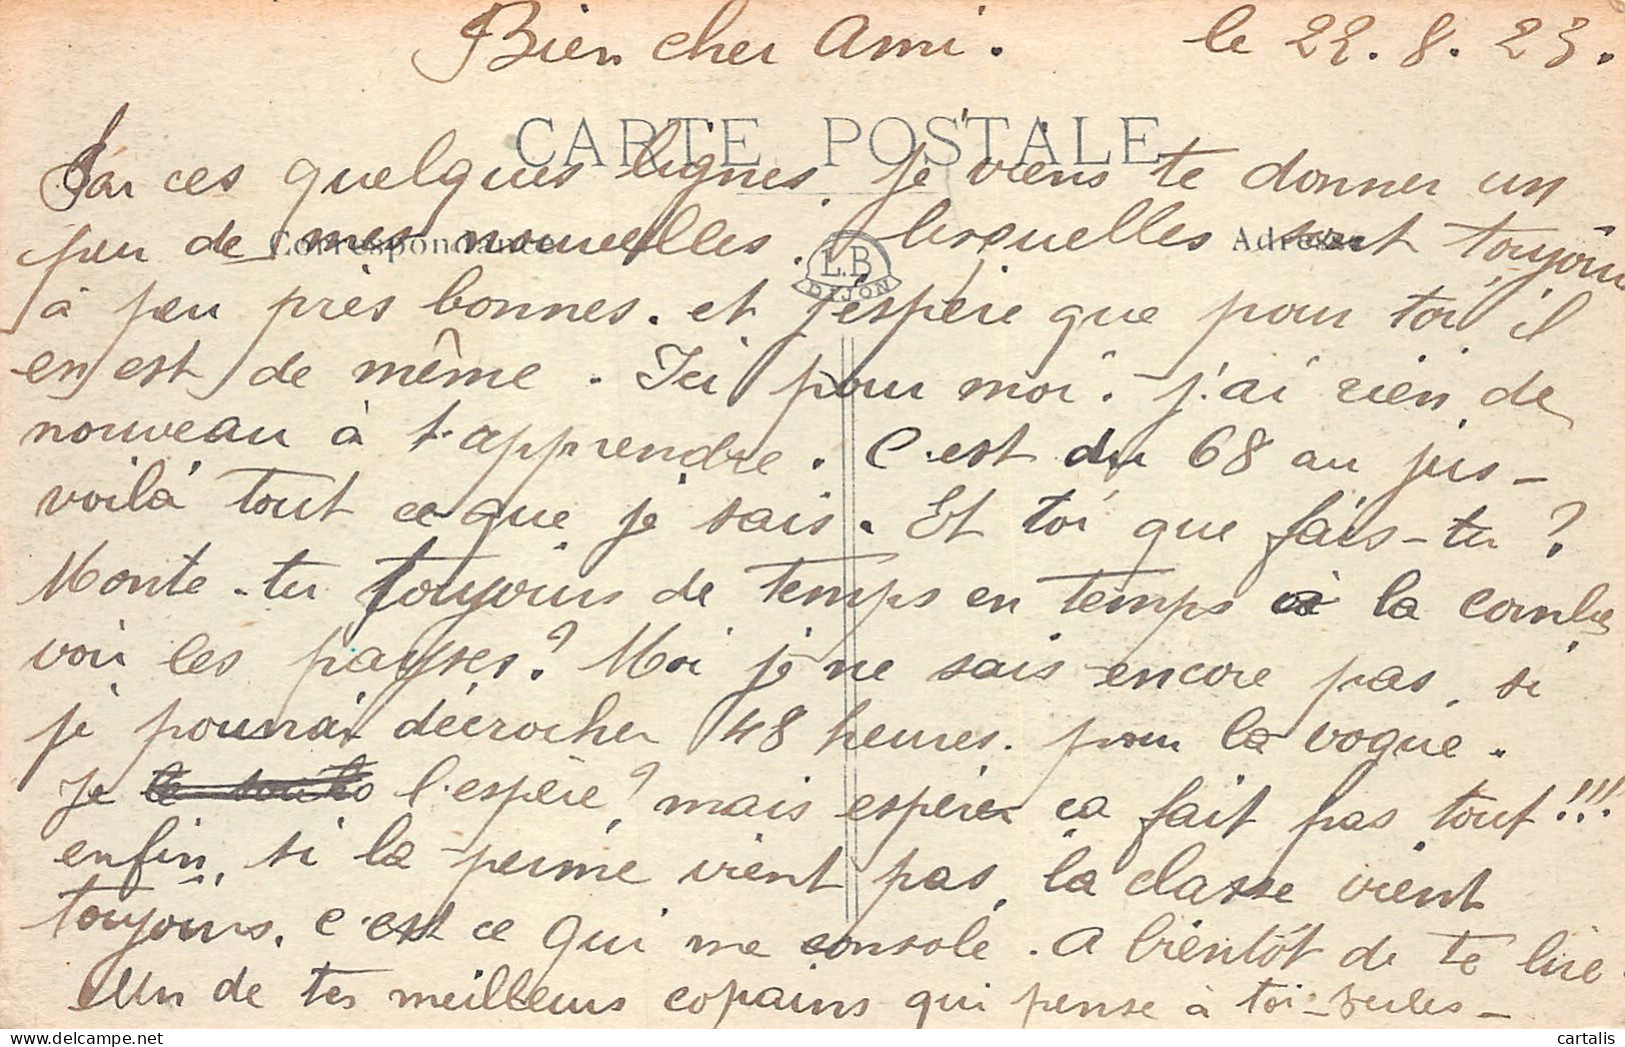 Bien cher Ami. le 22.8.23.
CARTE POSTALE
Par ces quelques lignes, je viens te donner un
peu de mes nouvelles, lesquelles sont toujours
Correspondance
Adresse
L.B
DIJON
à peu près bonnes. et j'espère que pour toi il
en est de même. Ici pour moi. j'ai rien de
nouveau à t'apprendre. C'est du 68 au jus -
voilà tout ce que je sais. Et toi que fais-tu ?
Monte-tu toujours de temps en temps à la combe
voir les payses ? Moi je ne sais encore pas, si
je pourrai décrocher 48 heures. pour la vogue.
Je l'espère ? mais espérer ca fait pas tout !!!
enfin, si la perme vient pas, la classe vient
toujours. c'est ce qui me console. A bientôt de te lire.
Un de tes meilleurs copains qui pense à toi - Jules -
cartalis